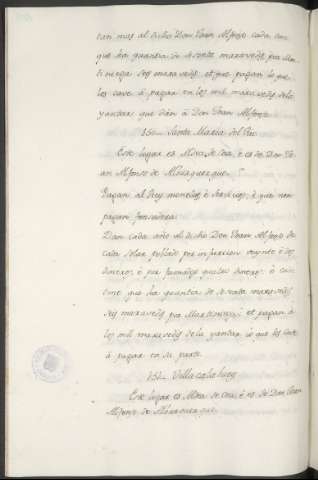 dan mas al dicho Don Juan Alfonso cada ome
que ha quantia de sesenta maravedis por Mar
tiniega seis maravedis et que pagan lo que
les cave à pagar en los mil maravedis de la
yantar que dan à Don Juan Alfonso
150 Santa Maria del Rio
Este lugar es de Don Ju
an Alfonso de Alburquerque.
Pagan al Rey monedas è servicios, è que non
pagan fonsadera.
Dan cada año al dicho Don Juan Alfonso de
cada solar poblado por infurcion veynte è dos
dineros, è por quatro dineros: è cada
ome que ha quantia de sesenta maravedis
seis maravedis por Martiniega; et pagan à
los mil maravedis de la yantar lo que les cave
à pagar en su parte.
151 Villacalabuey
Este lugar es de Don Juan
Alfonso de Alburquerque